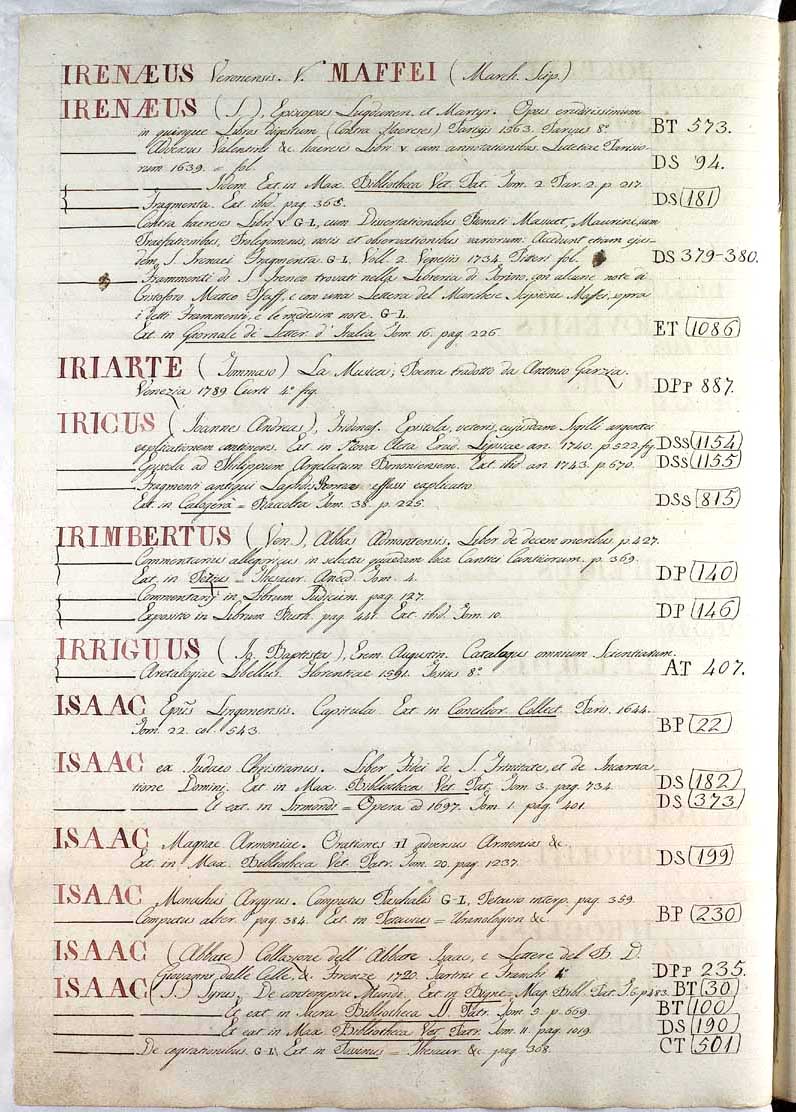 IRENÆUS Veronensis. V. MAFFEI (March. Scip.)
IRENÆUS (S.), Episcopus Lugdunen. et Martyr. Opus eruditissimum
in quinque Libros digestum (Contra Haereses) Parisijs 1563. 8.º BT 573.
Adversus Valentini &c. haereses Libri V cum annotationibus. Lutetiae Parisio-
rum 1639. = fol. DS 94.
Idem. Ext. in Max. Bibliotheca Vet. Pat. Tom. 2. Par. 2. p. 217.
Fragmenta. Ext. ibid. pag. 365. DS 181
Contra haereses Libri V G-L, cum Dissertationibus Renati Massuet, Maurini, cum
Praefationibus, Prolegomenis, notis et observationibus variorum. Accedunt etiam ejus-
dem S. Irenaei Fragmenta G-L, Voll. 2. Venetiis 1734. Pitteri fol. DS 379-380.
Frammenti di S. Ireneo trovati nella Libreria di Torino, con alcune note di
Cristoforo Matteo Pfaff, e con una Lettera del Marchese Scipione Maffei, sopra
i detti Frammenti, e le medesime note. G-L
Ext. in Giornale de' Letter. d'Italia Tom. 16. pag. 226. ET 1086
IRIARTE (Tommaso) La Musica; Poema tradotto da Antonio Garzia.
Venezia 1789 Curti 4.º fig. DPp 887.
IRICUS (Joannes Andreas), Tridines. Epistola, veteris cujusdam Sigilli argentei
explicationem continens. Ext. in Nova Acta Erud. Lipsiae an. 1740. p. 522. fig. DSS 1154
Epistola ad Philippum Argelatum Bononiensem. Ext. ibid. an. 1743. p. 670. DSS 1155
Fragmenti antiqui Lapidis Romae effossi explicatio
Ext. in Calogerà = Raccolta Tom. 38. p. 225. DSS 815
IRIMBERTUS (Ven.), Abbas Admontensis. Liber de decem oneribus p. 427.
Commentarius allegoricus in selecta quaedam loca Cantici Canticorum. p. 369.
Ext. in Pezius = Thesaur. Anecd. Tom. 4. DP 140
Commentarij in Librum Judicum. pag. 127.
Expositio in Librum Ruth. pag. 441. Ext. ibid. Tom. 10. DP 146
IRRIGUUS (Jo. Baptista), Erem. Augustin. Catalogus omnium Scientiarum.
Aretalogiae Libellus. Florentiae 1591. 8.º AT 407.
ISAAC Epũs Lingonensis. Capitula. Ext. in Concilior. Collect. Paris. 1644.
Tom. 22. col. 543. BP 22
ISAAC ex Judaeo Christianus. Liber Fidei de S. Trinitate, et de Incarna-
tione Domini. Ext. in Max. Bibliotheca Vet. Pat. Tom. 3. pag. 734. DS 182
Et ext. in Sirmond = Opera ad 1697. Tom. 1. pag. 401. DS 373
ISAAC Magnae Armeniae. Orationes II adversus Armenios &c.
Ext. in Max. Bibliotheca Vet. Patr. Tom. 20. pag. 1237. DS 199
ISAAC Monachus Argyrus. Computus Paschalis G-L, Petavio interp. pag. 359.
Computus alter. pag. 384. Ext. in Petavius = Uranologion &c. BP 230
ISAAC (Abbate) Collazione dell'Abbate Isaac, e Lettere del B. D.
Giovanni dalle Celle, &c. Firenze 1720. Tartini e Franchi 4.º DPp 235.
ISAAC (S.) Syrus, De contemptu Mundi. Ext. in Bigne = Mag. Bibl. Pat. T. 6. p. 483. BT 30
Et ext. in Sacra Bibliotheca SS. Patr. Tom. 5. p. 669. BT 100
Et ext. in Max. Bibliotheca Vet. Patr. Tom. 11. pag. 1019. DS 190
De cogitationibus. G-L Ext. in = Thesaur. &c. pag. 368. CT 501